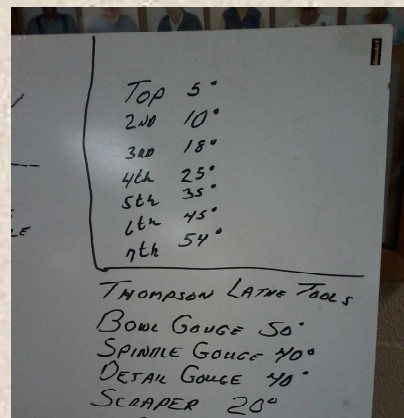 TOP 5°
2ND 10°
3RD 18°
4th 25°
5th 35°
6th 45°
7th 54°
THOMPSON LATHE TOOLS
BOWL GOUGE 50°
SPINDLE GOUGE 40°
DETAIL GOUGE 40°
SCRAPER 20°